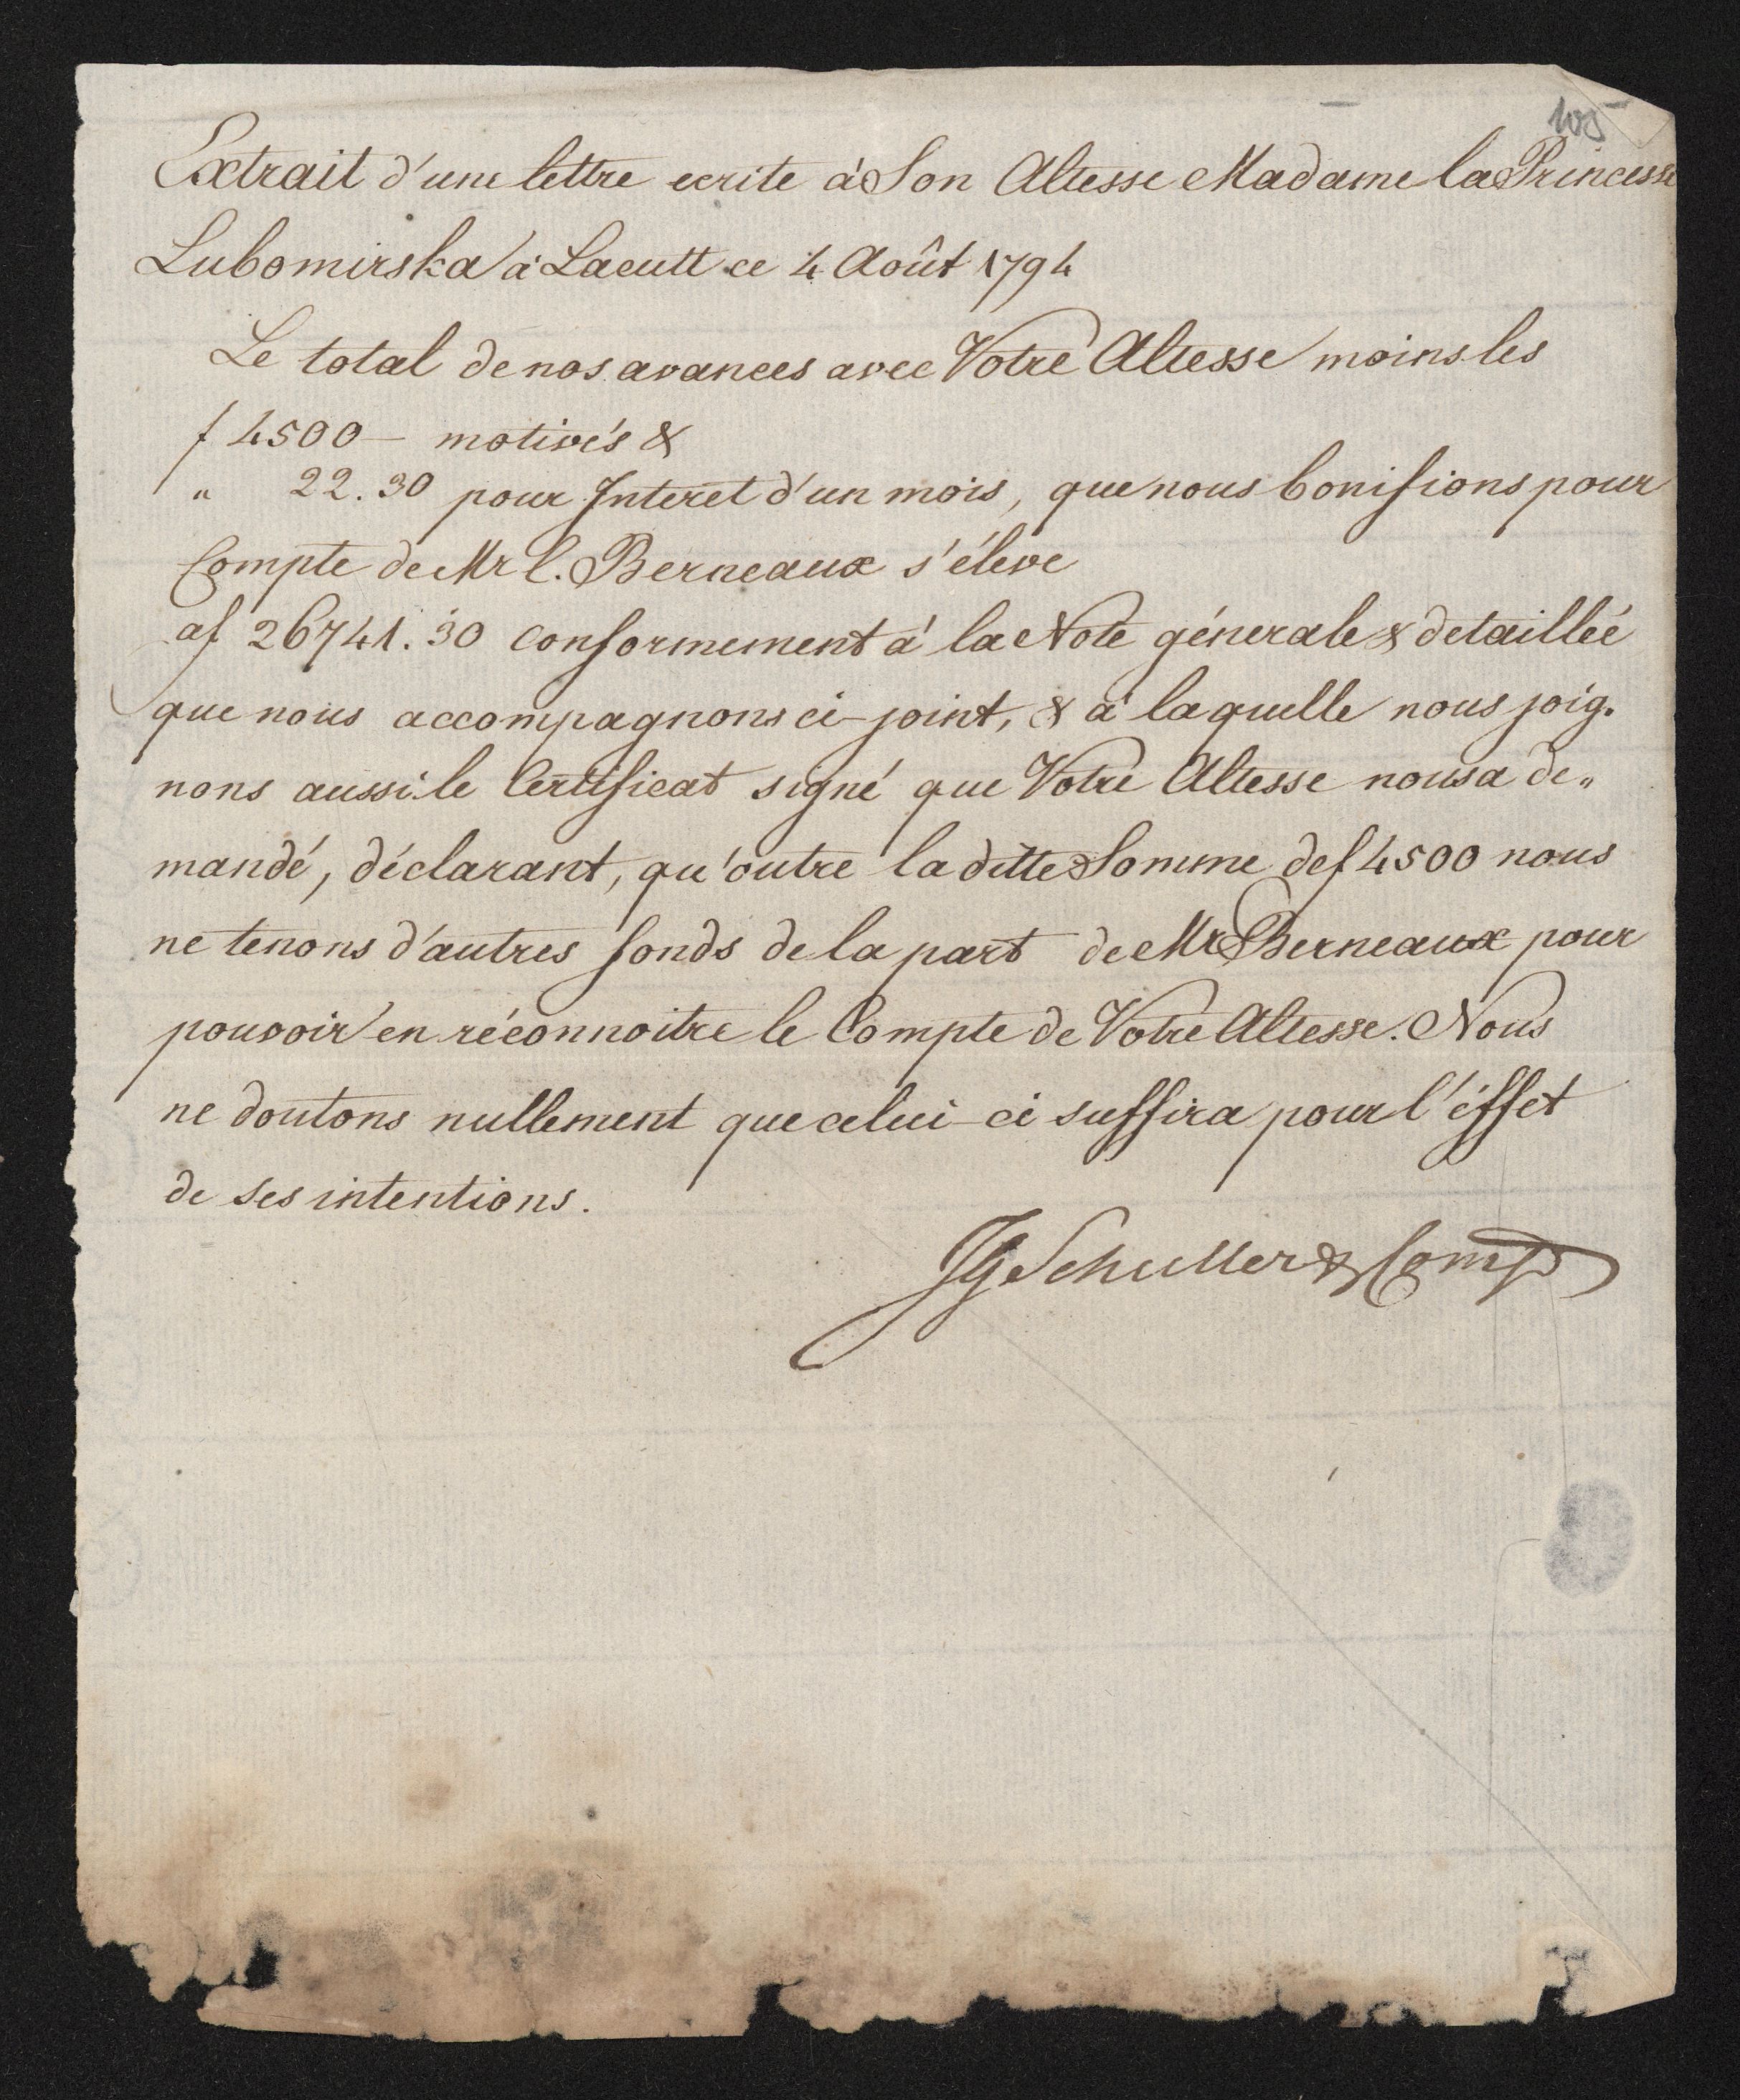 105
Extrait d'une lettre ecrite à Son Altesse Madame la Princesse
Lubomirska à Lacutt ce 4 Août 1794
Le total de nos avances avec Votre Altesse moins les
f 4500 — motivés &
" 22.30 pour Interet d'un mois, que nous bonifions pour
Compte de Mr C. Berneaux s'éleve
a f 26741.30 conformement à la Note génerale & detaillée
que nous accompagnons ci-joint, & à laquelle nous joig.
nons aussi le Certificat signé que Votre Altesse nous a de„
mandé, déclarant, qu'outre la ditte Somme de f 4500 nous
ne tenons d'autres fonds de la part de Mr Berneaux pour
pouvoir en réconnoitre le Compte de Votre Altesse. Nous
ne doutons nullement que celui-ci suffira pour l'éffet
de ses intentions.
JG Schuller & Comp